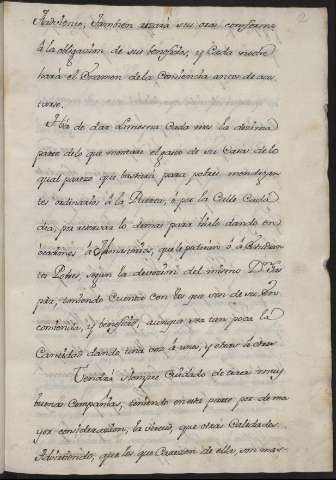 2
tambien rezará sus oras conforme
á la obligacion de sus beneficios, y Cada noche
hará el Examen de la Conciencia antes de acos
tarse.
Ha de dar Limosna Cada mes la decima
parte de lo que montare el gasto de su Casa de lo
qual parece que bastará para pobres mendigan
tes ordinarios á la Puerta, ó por la Calle Cada
dia, y á reservar lo demas para írselo dando en
ocasiones á que le pidieren ó á Estudian
tes Pobres, segun la devocion del mismo Dn. Gas
par, teniendo Cuenta con los que son de su En
comienda, y beneficios, aunque sea tan poca la
Cantidad dando una vez á unos, y otras á otros
Tendrá siempre Cuidado de traer muy
buena Compañia, teniendo en esta parte por de ma
yor consideracion, la Virtud, que otras Calidades
Advirtiendo, que los que Carecen de ella, son mas